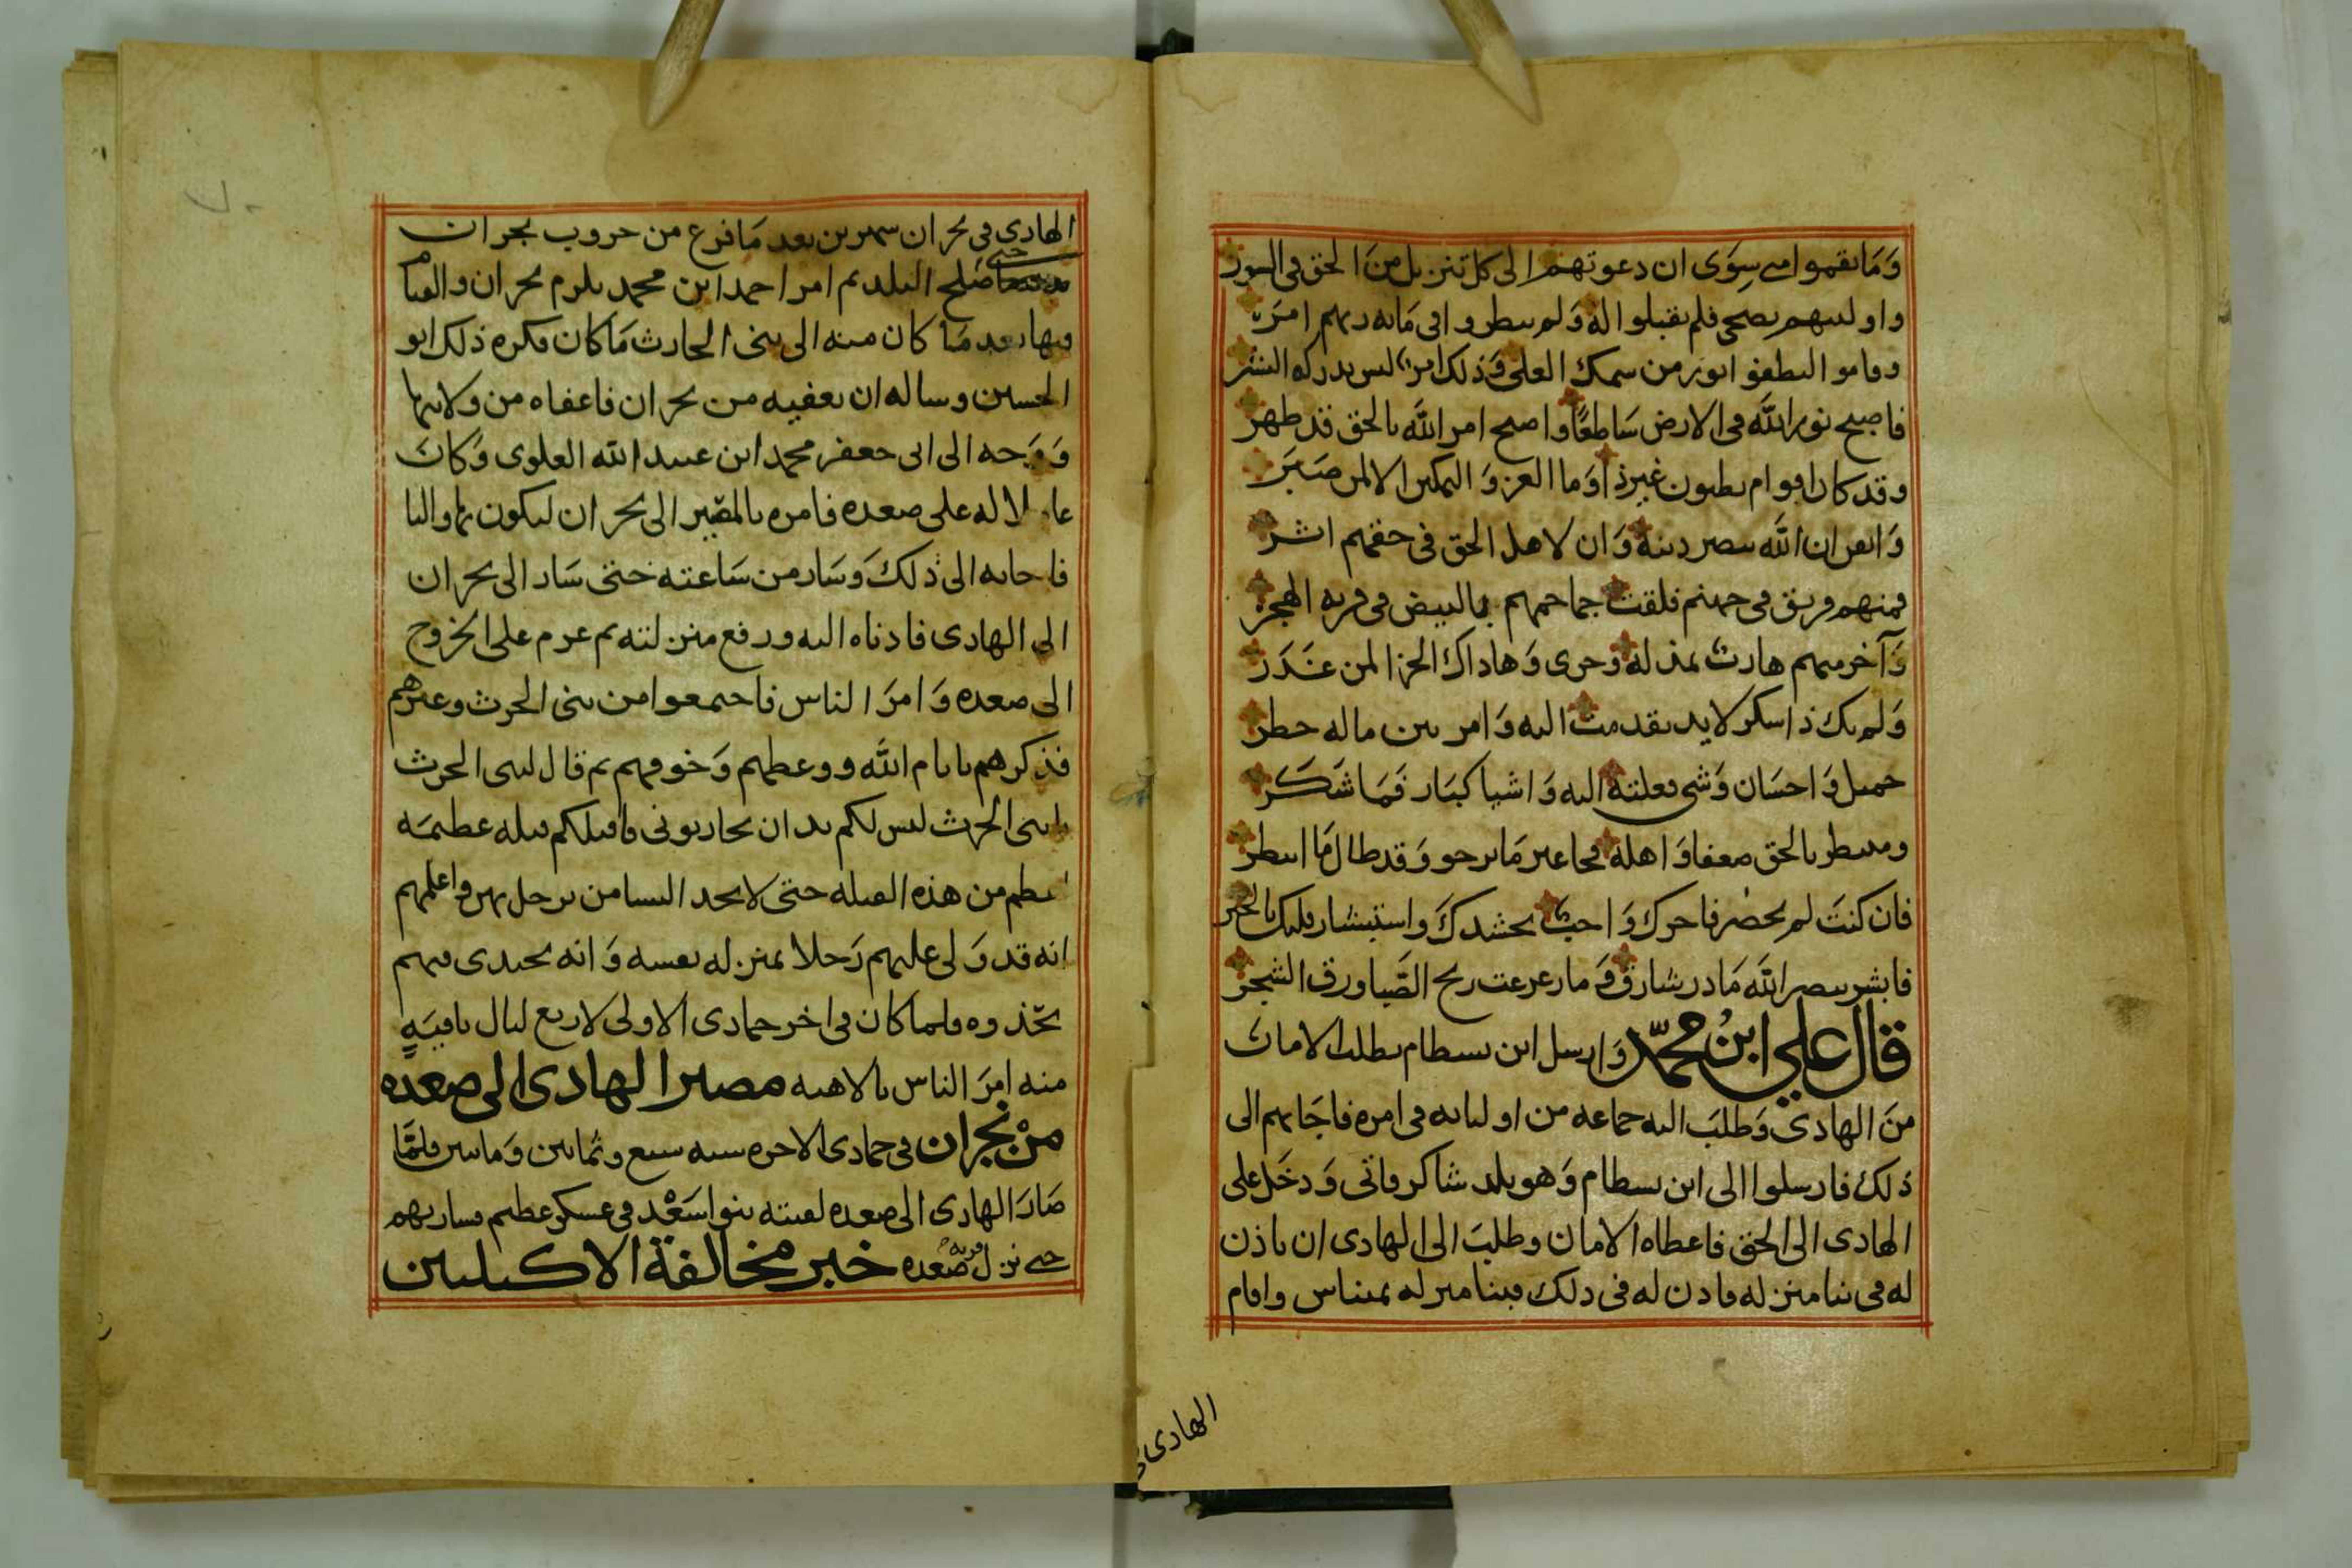 وَمَا نقموا مني سِوَى ان دعوتهم الى كل تنزيل منَ الحق في السور
واوليتهم نصحي فلم يقبلوا له وَلم ينظروا في مَا به ربهم امَرَ
وقاموا ليطفوا نورَ من سمك العلى وَذلك امرٌ ليس يدركه البشر
فاصبح نور اللَّه في الارض سَاطعًا واصبح امر اللَّه بالحق قد ظهر
وقد كان اقوام يظنون غيرذا وَما العز وَ التمكين الا لمن صَبَرَ
وَايقن ان اللَّه ينصر دينه وَان لاهل الحق في حقهم اثر
فمنهم فريق في جهنم فلقت جماجمهم بالبيض في قرية الهجر
وَآخر منهم هارب بمذله وحزى وَهاداك الجزا لمن غَدَرَ
وَلم يك ذا شكر لايد تقدمت اليه وَامر بين ماله خطر
جميل وَاحسَان وَشي فعلته اليه وَاشيا كبَار فَمَا شَكَر
ومنتظر بالحق ضعفا وَاهله فجا غير مَا يرجو وَقد طال مَا انتظر
فان كنتَ لم تحضر فاجرك وَاجبٌ بحشدكَ واستبشار قلبك بالخبر
فابشر بنصر اللَّه مَا در شارق وَمَا زعزعت ريح الصَّبا ورق الشجر
قال علي ابنُ محمّد وَارسل ابن بسطام يطلب الامان
منَ الهادي وَطلبَ اليه جماعه من اوليائه في امره فاجَابهم الى
ذلك فارسلوا الى ابن بسطام وَهو ببلد شاكر فاتى وَدخَل على
الهادى الى الحق فاعطاه الامان وطلبَ الى الهادى ان ياذن
له في بنا منزله فاذن له في ذلك فبنا منزله بميناس واقام
الهادى
الهادي في نجران شهرين بعد مَا فرغ من حروب نجران
حتى صَلح البلد ثم امر احمد ابن محمد بلزم نجران والقيام
فيها بعد مَا كان منه الى بني الحارث مَا كان فكره ذلك ابو
الحسين وساله ان يعفيه من نجران فاعفاه من ولايتها
وَوَجه الى ابي جعفر محمد ابن عبيد الله العلوي وَكان
عاملا له على صعده فامره بالمصير الى نجران ليكون بها واليا
فاجابه الى ذلكَ وَسَار من سَاعته حَتى سَار الى نجران
الى الهادى فادناه اليه ورفع منزلته ثم عزم على الخروج
الى صعده وَامرَ الناس فاجتمعوا من بني الحرث وغيرهم
فذكرهم بايام اللَّه ووعظهم وَخوفهم ثم قال لبنى الحرث
يا بنى الحرث ليس لكم بد ان تحاربوني فاقتلكم قتله عظيمَه
اعظم من هذه القتله حتى لا تجد النسا من يرجل بهن واعلمهم
انه قد وَلى عليهم رَجلا بمنزله نفسه وَانه يحتذى فيهم
بحذوه فلما كان في اخر جمادى الاولى لاربع ليال باقيَةٍ
منه امرَ الناس بالاهبه مصير الهادى الى صعده
منْ نجران في جمادى الاخره سنه سبع وثمانين وَمايتين فلمَّا
صَارَ الهادى الى صعده لقيته بنو اسَعْد في عسكر عظيم فسار بهم
حتى نزل قرية صعده خبر مخالفة الاكيليين